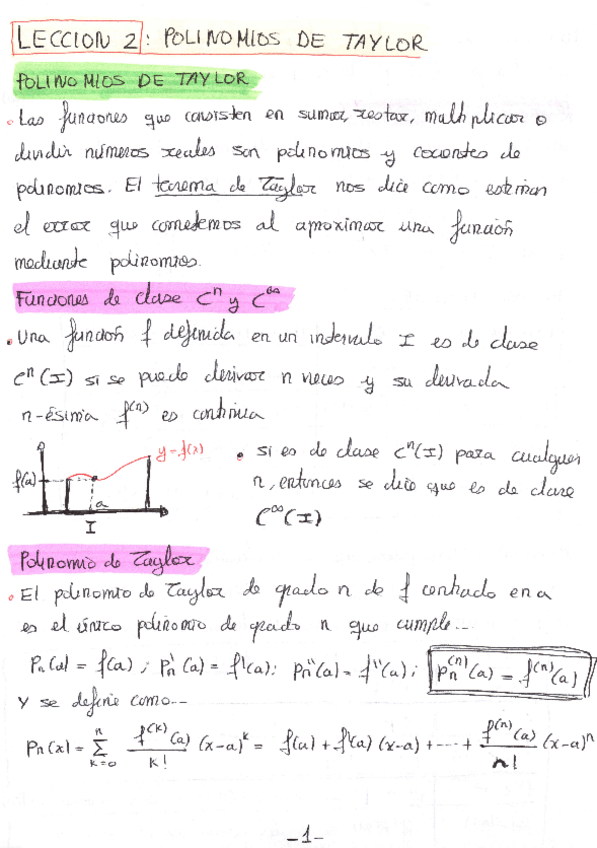 LECCION 2: POLINOMIOS DE TAYLOR
POLINOMIOS DE TAYLOR
• Las funciones que consisten en sumar, restar, multiplicar o
dividir números reales son polinomios y cocientes de
polinomios. El teorema de Taylor nos dice como estiman
el error que cometemos al aproximar una función
mediante polinomios.
Funciones de clase Cⁿ y C^∞
• Una función f definida en un intervalo I es de clase
Cⁿ(I) si se puede derivar n veces y su derivada
n-ésima f⁽ⁿ⁾ es continua
y=f(x)
f(a)
a
I
• Si es de clase Cⁿ(I) para cualquier
n, entonces se dice que es de clase
C^∞(I)
Polinomio de Taylor
• El polinomio de Taylor de grado n de f centrado en a
es el único polinomio de grado n que cumple...
Pn(a) = f(a); Pn'(a) = f'(a); Pn''(a) = f''(a); Pn⁽ⁿ⁾(a) = f⁽ⁿ⁾(a)
Y se define como...
Pn(x) = ∑_{k=0}^{n} f^(k)(a)/k! (x-a)^k = f(a) + f'(a)(x-a) + ... + f^(n)(a)/n! (x-a)^n
-1-